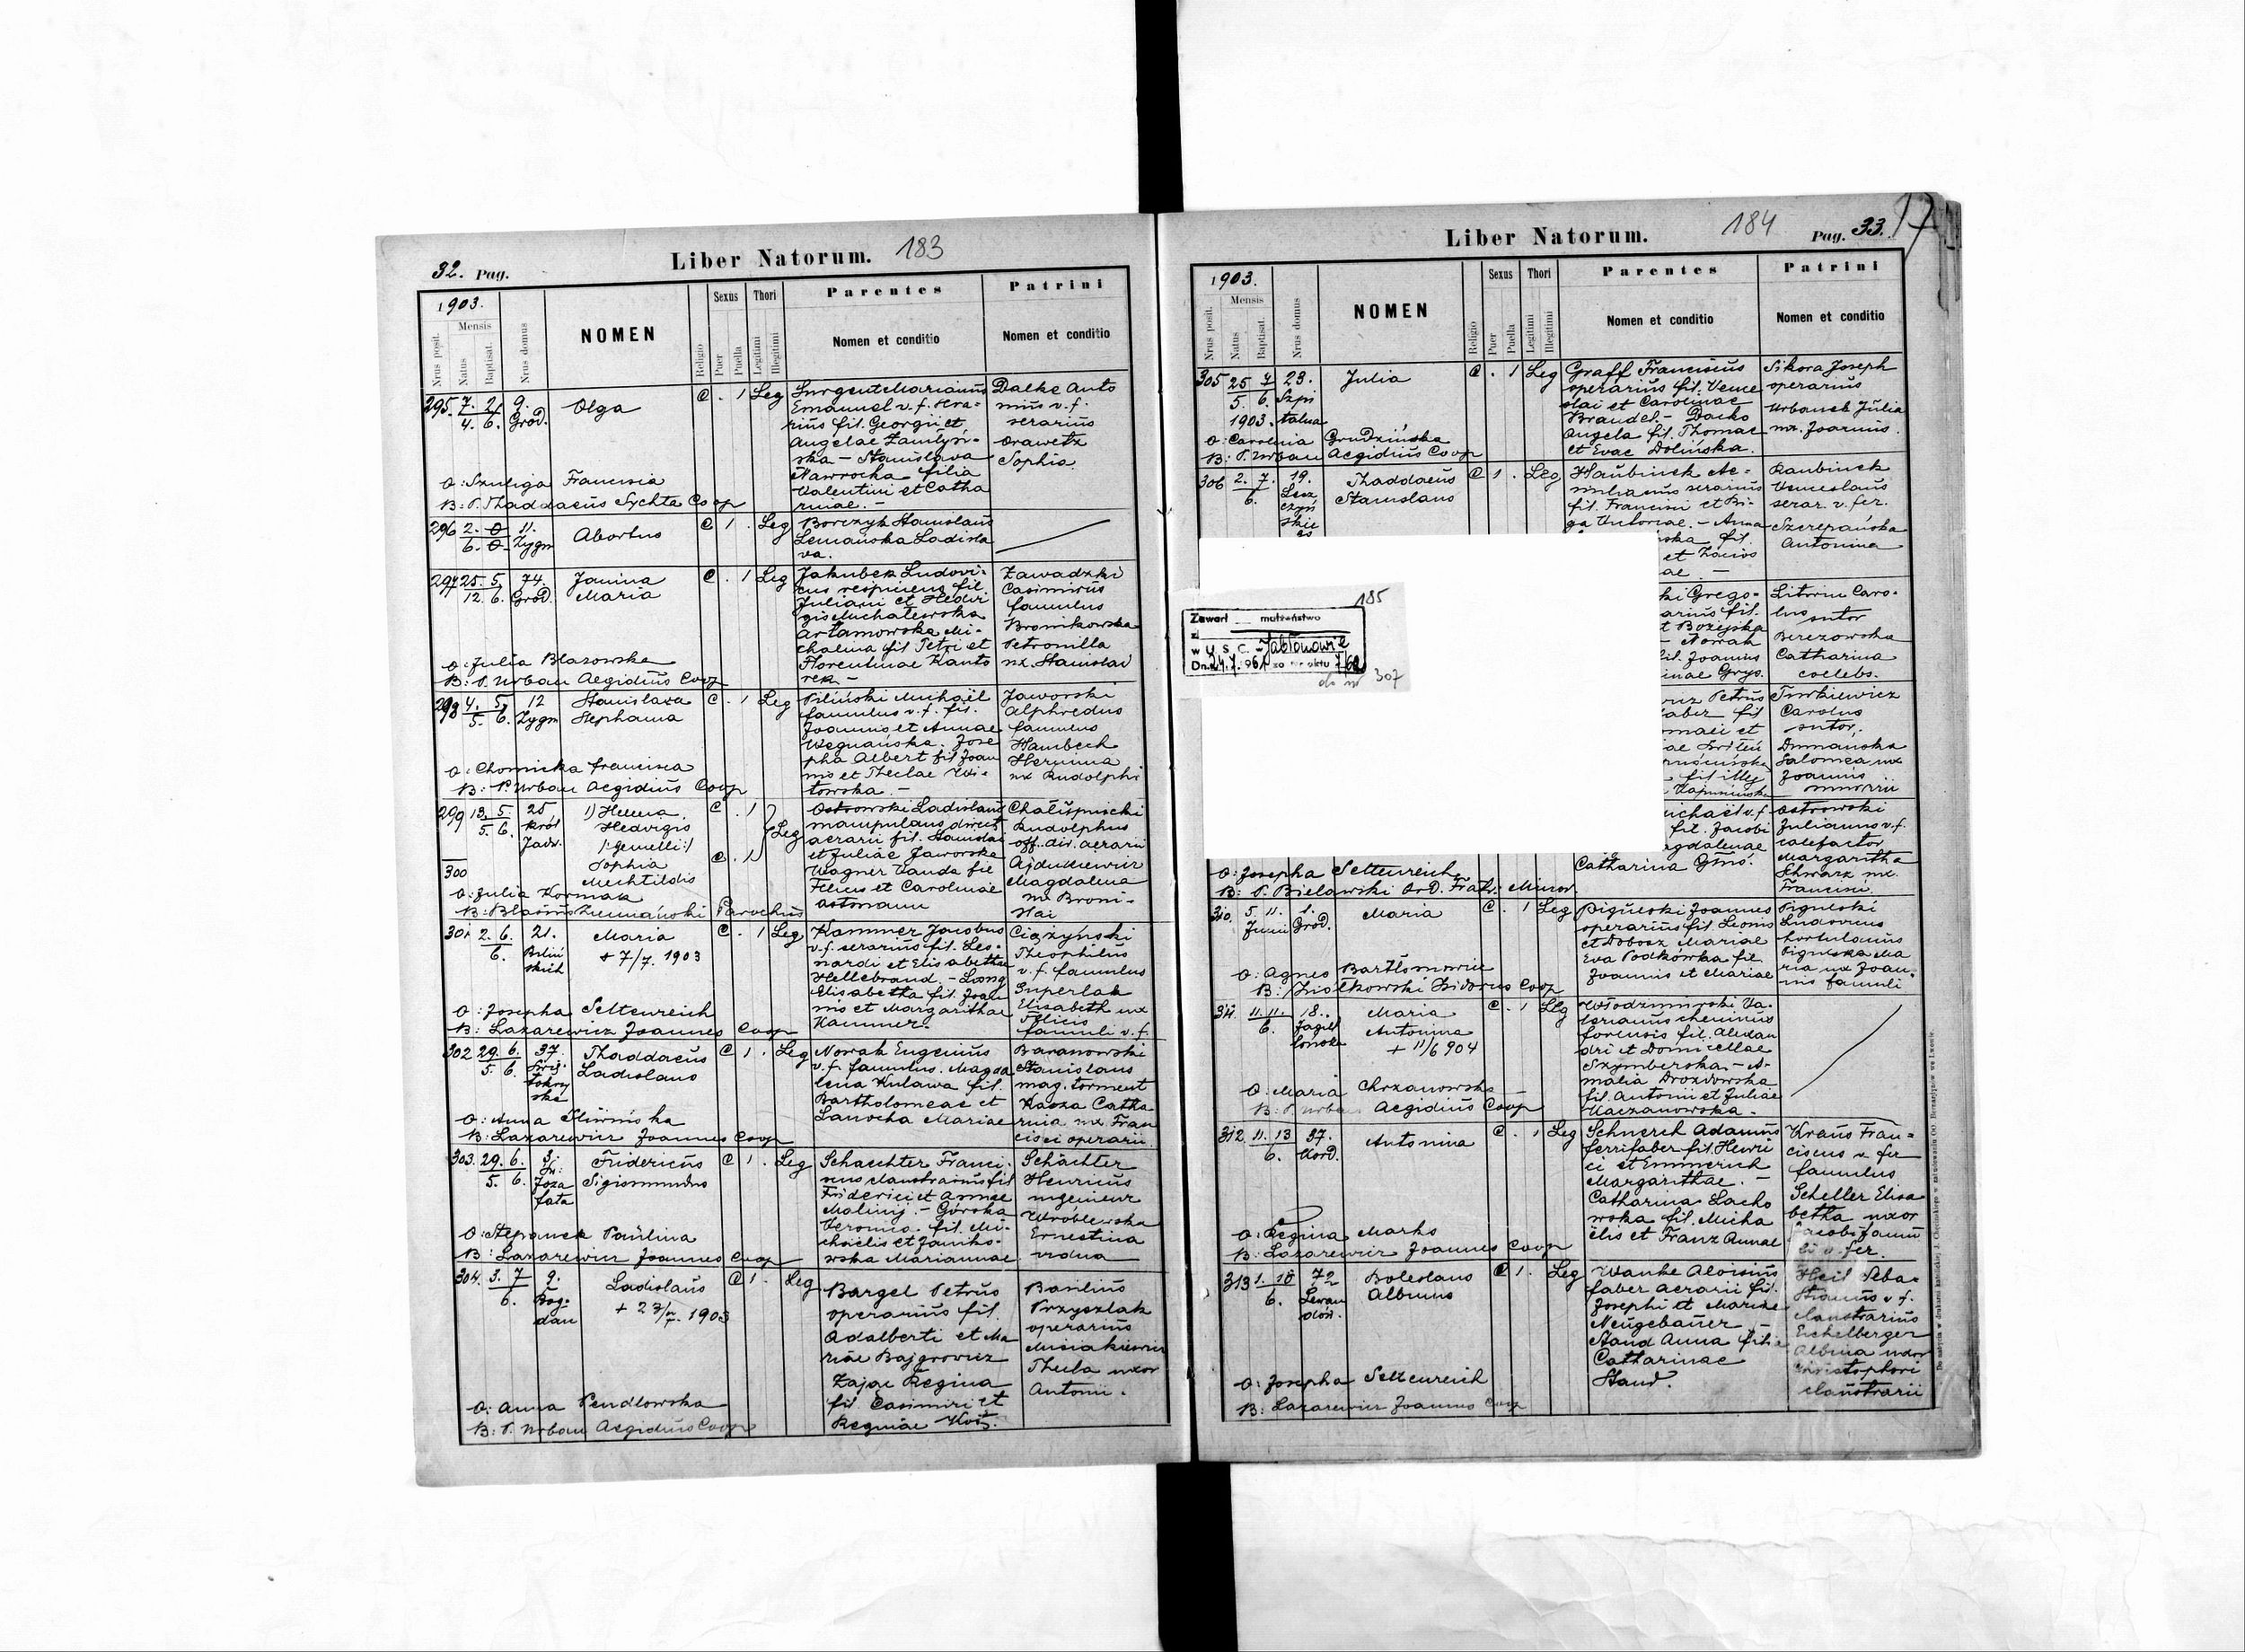 32. Pag.
Liber Natorum. 183
1903.
Nrus posit.
Mensis
Natus
Baptisat.
Nrus domus
NOMEN
Religio
Sexus
Puer
Puella
Thori
Legitimi
Illegitimi
Parentes
Nomen et conditio
Patrini
Nomen et conditio
295. 7. 2. 9. Olga C . 1 Leg
4. 6. Gród.
Emanuel v. f.
fil. Georgii et
Angelae
ska - Stanislava
Nawrocka filia
Valentini et Catha
rinae. -
Dalke Anto
nius v. f.
serarius
Orawetz
Sophia
O: Szuliga Francisca
B: P. Thaddaeus Sychta Coop
296 2. 0 11. Abortus C 1 . Leg
6. 0 Zygm
Borczyk Stanislaus
Lemańska Ladisla
va.
297 25. 5. 74. Janina C . 1 Leg
12. 6. Gród. Maria
Jakubek Ludovi-
cus respiciens fil.
Juliani et Hedvi
gis Michalewska
Artamowska Mi-
chalina fil Petri et
Florentinae Kanto
rek -
Zawadzki
Casimirus
famulus
Bronikowska
Petronilla
ux. Stanislai
O: Julia Blazowska
B: P. Urban Aegidius Coop
298 4. 5. 12 Stanislava C . 1 Leg
5. 6. Zygm Stephania
Piliński Michaël
famulus v. f. fil.
Joannis et Annae
Wegnańska. Jose
pha Albert fil Joan
nis et Theclae Wi-
towska. -
Jaworski
Alphredus
famulus
Hambech
Hermina
ux Rudolphi
O: Chomicka Francisca
B: P. Urban Aegidius Coop
299 13. 5. 25 1) Helena C . 1 Leg
5. 6. Król. Hedvigis
Jadw. /: gemelli :/
300 Sophia C . 1
Mechtildis
Ostrowski Ladislaus
manipulans direct
aerarii fil. Stanislai
et Juliae Jaworska
Wagner Vanda fil
Felicis et Carolinae
Astmann
Rudolphus
off. dir. aerarii
Ajdukiewicz
Magdalena
ux Broni-
slai
O: Julia Kormak
B: Blasius Parochus
301 2. 6. 21. Maria C . 1 Leg
6. Biliń + 7/7. 1903
skich
Kammer Jacobus
v. f. serarius fil. Leo-
nardi et Elisabethae
Hellebrand. - Long
Elisabetha fil. Joan
nis et Margarithae
Kammer. -
Ciążyński
Theophilus
v. f. famulus
Superlak
Elisabeth ux
Felicis
famuli v. f.
O: Josepha Seltenreich
B: Lazarewicz Joannes Coop
302 29. 6. 37. Thaddaeus C 1 . Leg
5. 6. Ladislaus
Nowak Eugenius
v. f. famulus. Magda
lena Kulawa fil.
Bartholomeae et
Lanocha Mariae
Baranowski
Stanislaus
mag. torment
Kacza Catha
rina ux. Fran
cisci operarii
O: Anna Śliwińska
B: Lazarewicz Joannes Coop
303. 29. 6. 3. Fridericus C 1 . Leg
5. 6. Joza Sigismundus
fata
Schaechter Franci-
scus claustrarius fil
Friderici et Annae
Malinij - Górska
Veronica. fil. Mi-
chaelis et Janiko-
wska Mariannae
Schächter
Henricus
ingenieur
Wróblewska
Ernestina
vidua
O: Stepanek Paulina
B: Lazarewicz Joannes Coop
304. 3. 7 9. Ladislaus C 1 . Leg
6. Bog- + 27/ . 1903
dan
Bargel Petrus
operarius fil.
Adalberti et Ma
riae Bajgrowicz
Zając Regina
fil Casimiri et
Reginae
Basilius
Przyszlak
operarius
Misiakiewicz
Thecla uxor
Antonii.
O: Anna Pendlowska
B: P. Urban Aegidius Coop
Liber Natorum. 184 Pag. 33. 17
1903.
Nrus posit.
Mensis
Natus
Baptisat.
Nrus domus
NOMEN
Religio
Sexus
Puer
Puella
Thori
Legitimi
Illegitimi
Parentes
Nomen et conditio
Patrini
Nomen et conditio
305 25 7 23. Julia C . 1 Leg
5. 6. Szpi
1903. talna
Graff Franciscus
operarius fil. Vence
slai et Carolinae
Brandel - Dacko
Angela fil. Thomae
et Evae Dolińska.
Sikora Joseph
operarius
Urbanek Julia
ux. Joannis.
O: Carolina Grudzińska
B: P. Urban Aegidius Coop
306 2. 7. 19. Thaddaeus C 1 . Leg
6. Lesz Stanislaus
czyń
skie
go
serarius
fil. Francisci et Bi-
ga Victoriae. - Anna
ska fil.
et
ae. -
Raubinek
Venceslaus
serar. v. fer.
Szczepańska
Antonina
185
Zawarł małżeństwo
z
w U. S. C. Jabłonowie
Dn. 24.7.1961 za nr aktu 7/61
do nr 307
ki Grego-
arius fil.
t Bożejska
- Nowak
il. Joannis
inae Gryg.
Litwin Caro-
lus sutor
Berezowska
Catharina
coelebs.
icz Petrus
faber fil
omaei et
fil illeg
Turkiewicz
Carolus
sutor.
Dumańska
Salomea ux
Joannis
ichaël v. f
fil. Jacobi
agdalenae
Catharina
Ostrowski
Julianus v. f.
calefactor
Margaritha
Schwarz ux.
Francisci.
O: Josepha Seltenreich
B: P. Bielawski Ord. Fratr. Minor
310. 5. 11. 1. Maria C . 1 Leg
Junii Gród.
Pigulski Joannes
operarius fil. Leonis
et Dobosz Mariae
Eva Podkówka fil.
Joannis et Mariae
Pigulski
Ludovicus
hortulanus
Pigulska Ma
ria ux Joan-
nis famuli
O: Agnes Bartłomowicz
B: Ziółkowski Isidorus Coop
311. 11. 11. 18. Maria C . 1 Leg
6. Jagiel Antonina
lońska + 11/6 904
Włodzimirski Va-
lerianus chemicus
forensis fil. Alexan
dri et Domicellae
Szymberska - A-
malia Drozdowska
fil. Antonii et Juliae
Kaczanowska. -
O: Maria Chrzanowska
B: P. Urban Aegidius Coop
312. 11. 13 37. Antonina C . 1 Leg
6. Kord.
Schnerch Adamus
ferrifaber fil. Henri
ci et Emmerich
Margarithae. -
Catharina Lacho
wska fil. Micha
ëlis et Franz Annae
Kraus Fran-
ciscus v. fer
famulus
Scheller Elisa
betha uxor
Jacobi famu
li v. fer.
O: Regina Marks
B: Lazarewicz Joannes Coop
313 1. 18 72 Boleslaus C 1 . Leg
6. Lewan Albinus
dów.
Wanke Aloisius
faber aerarii fil.
Josephi et Mariae
Neugebauer -
Staud Anna filia
Catharinae
Staud.
Heil Seba-
stianus v. f.
claustrarius
Eichelberger
Albina uxor
Christophori
claustrarii
O: Josepha Seltenreich
B: Lazarewicz Joannes Coop